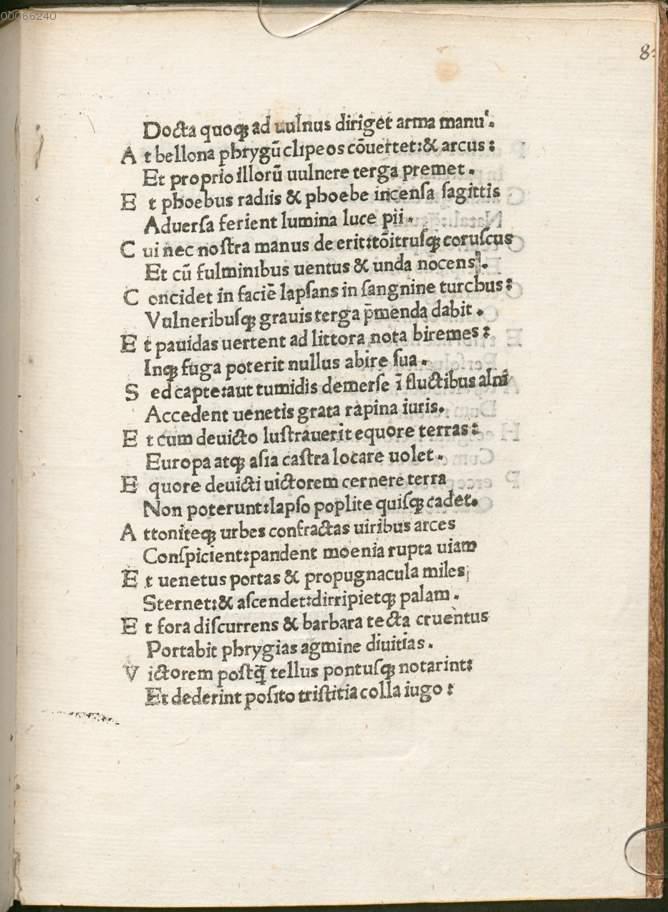 00066240
8
Docta quoqꝫ ad uulnus diriget arma manuꝰ.
A t bellona phrygū clipeos cōuertet:& arcus:
Et proprio illorū uulnere terga premet.
E t phoebus radiis & phoebe incensa sagittis
Aduersa ferient lumina luce pii.
C ui nec nostra manus de erit:tōitrusqꝫ coruscus
Et cū fulminibus uentus & unda nocens.
C oncidet in faciē lapsans in sangnine turcbus:
Vulneribusqꝫ grauis terga p̄menda dabit.
E t pauidas uertent ad littora nota biremes:
Inqꝫ fuga poterit nullus abire sua.
S ed capte:aut tumidis demerse ī fluctibus alni
Accedent uenetis grata rapina iuris.
E t cum deuicto lustrauerit equore terras:
Europa atqꝫ asia castra locare uolet.
E quore deuicti uictorem cernere terra
Non poterunt:lapso poplite quisqꝫ cadet.
A ttoniteqꝫ urbes confractas uiribus arces
Conspicient:pandent moenia rupta uiam
E t uenetus portas & propugnacula miles
Sternet:& ascendet:dirripietqꝫ palam.
E t fora discurrens & barbara tecta cruentus
Portabit phrygias agmine diuitias.
V ictorem postq̄ tellus pontusqꝫ notarint:
Et dederint posito tristitia colla iugo: